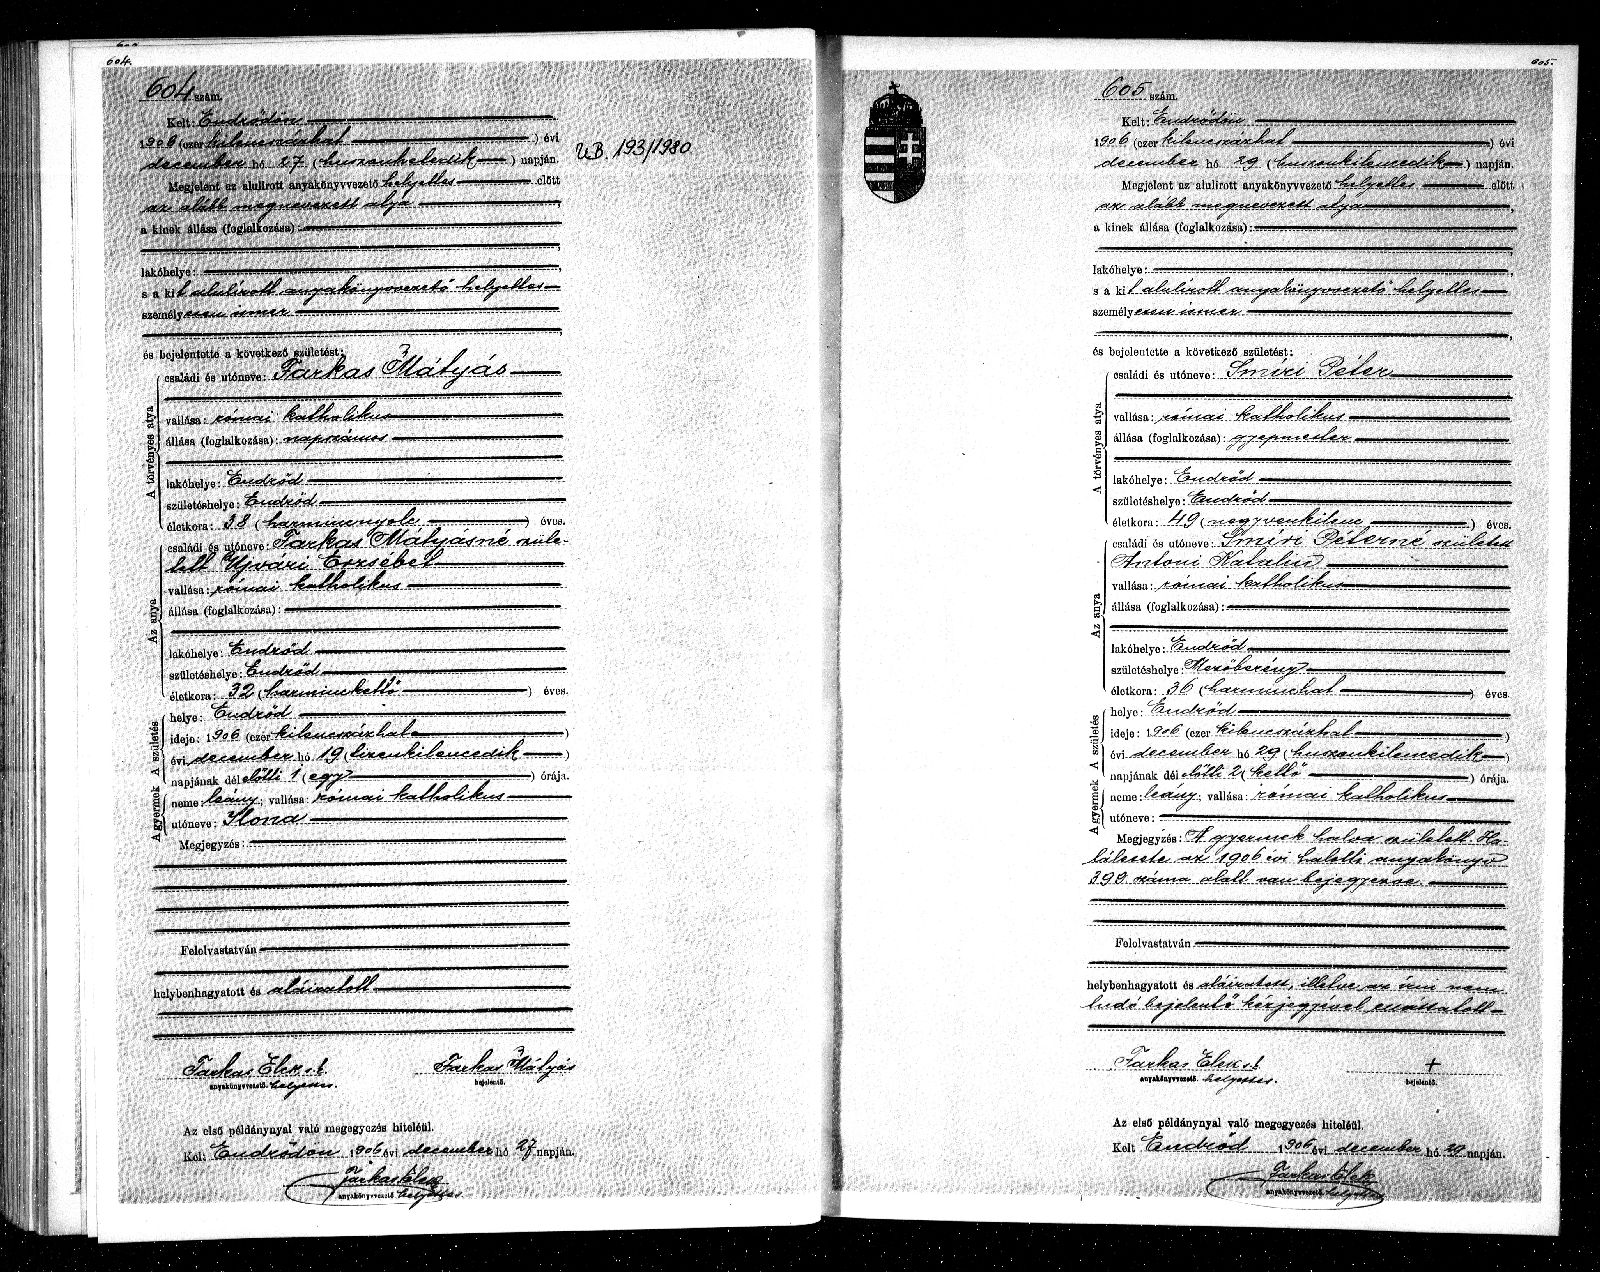 604.
604 szám.
Kelt: Endrődön
1906 (ezer kilencszázhat ) évi
december hó 27 (huszonhetedik ) napján.
UB. 193/1980
Megjelent az alulirott anyakönyvvezető helyettes előtt
az alább megnevezett atya,
a kinek állása (foglalkozása):
lakóhelye:
s a kit alulírott anyakönyvvezető helyettes
személyesen ismer
és bejelentette a következő születést:
A törvényes atya
családi és utóneve: Farkas Mátyás
vallása: római katholikus
állása (foglalkozása): napszámos
lakóhelye: Endrőd
születéshelye: Endrőd
életkora: 38 (harmincnyolc ) éves.
Az anya
családi és utóneve: Farkas Mátyásné szüle-
tett Ujvári Erzsébet
vallása: római katholikus
állása (foglalkozása):
lakóhelye: Endrőd
születéshelye: Endrőd
életkora: 32 (harminckettő ) éves.
A gyermek A születés
helye: Endrőd
ideje: 1906 (ezer kilencszázhat )
évi december hó 19 (tizenkilencedik )
napjának dél előtti 1 (egy ) órája.
neme: leány; vallása: római katholikus
utóneve: Ilona
Megjegyzés:
Felolvastatván
helybenhagyatott és aláiratott
Farkas Elek s.k. Farkas Mátyás
anyakönyvvezető. helyettes. bejelentő.
Az első példánynyal való megegyezés hiteléül.
Kelt Endrődön 1906 évi december hó 27 napján.
Farkas Elek
anyakönyvvezető helyettes
605.
605 szám.
Kelt: Endrődön
1906 (ezer kilencszázhat ) évi
december hó 29 (huszonkilencedik ) napján.
Megjelent az alulirott anyakönyvvezető helyettes előtt
az alább megnevezett atya,
a kinek állása (foglalkozása):
lakóhelye:
s a kit alulírott anyakönyvvezető helyettes
személyesen ismer
és bejelentette a következő születést:
A törvényes atya
családi és utóneve: Smiri Péter
vallása: római katholikus
állása (foglalkozása): gyepmester
lakóhelye: Endrőd
születéshelye: Endrőd
életkora: 49 (negyvenkilenc ) éves.
Az anya
családi és utóneve: Smiri Péterné született
Antoni Katalin
vallása: római katholikus
állása (foglalkozása):
lakóhelye: Endrőd
születéshelye: Mezőberény
életkora: 36 (harminchat ) éves.
A gyermek A születés
helye: Endrőd
ideje: 1906 (ezer kilencszázhat )
évi december hó 29 (huszonkilencedik )
napjának dél előtti 2 (kettő ) órája.
neme: leány; vallása: római katholikus
utóneve:
Megjegyzés: A gyermek halva született. Ha-
lálesete az 1906 évi halotti anyakönyv
399. száma alatt van bejegyezve.
Felolvastatván
helybenhagyatott és aláiratott, illetve az írni nem
tudó bejelentő kézjegyével elláttatott
Farkas Elek s.k. +
anyakönyvvezető. helyettes. bejelentő.
Az első példánynyal való megegyezés hiteléül.
Kelt Endrőd 1906 évi december hó 29 napján.
Farkas Elek
anyakönyvvezető. helyettes